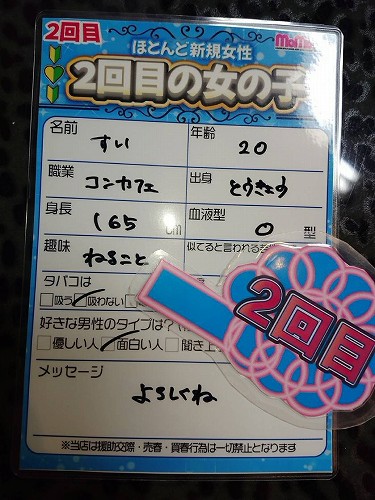 2回目
ほとんど新規女性
2回目の女の子
名前 すい 年齢 20
職業 コンカフェ 出身 とうきょう
身長 165 cm 血液型 O 型
趣味 ねること 似てると言われる
タバコは
吸う 吸わない
好きな男性のタイプは?
優しい人 面白い人 聞き上
メッセージ
よろしくね
※当店は援助交際・売春・買春行為は一切禁止となります
2回目